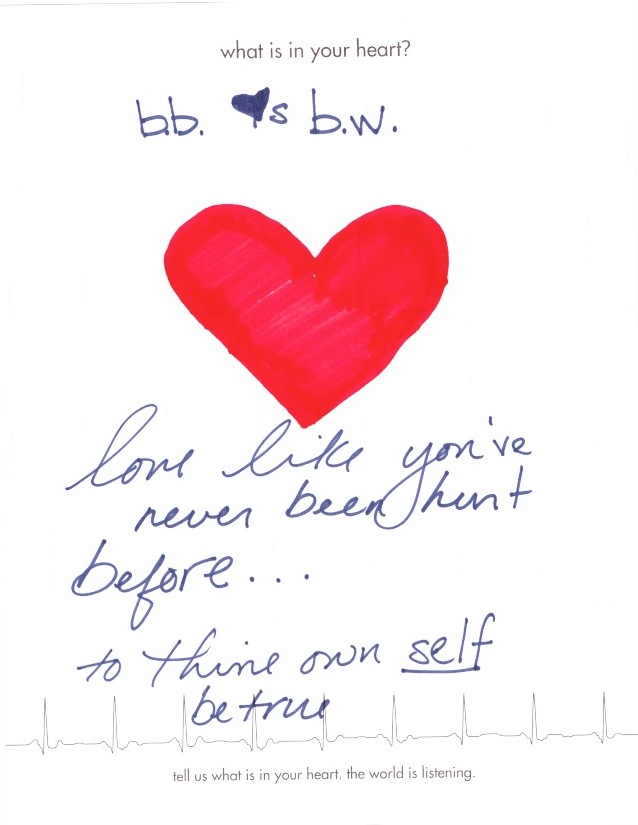 what is in your heart?
b.b. ♥s b.w.
love like you've
never been hurt
before...
to thine own self
be true
tell us what is in your heart. the world is listening.